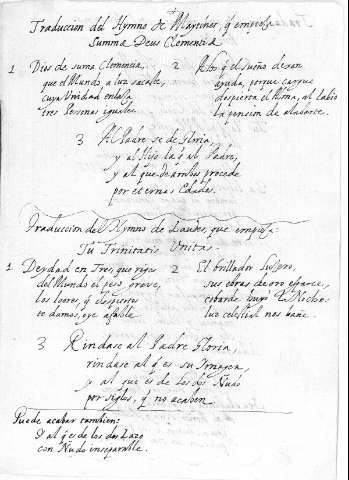 Traduccion del Hymno de Maytines, q̃ empieza
Summæ Deus Clementiæ
1 Dios de suma Clemencia,
que el Mundo a luz sacaste,
cuya Unidad enlaza
tres Personas iguales.
2 Por q̃ el sueño dexan
ayuda, porque cargue
despierta el Alma, al labio
la pension de alabarte.
3 Al Padre se dè Gloria,
y al Hijo la q̃ al Padre,
y al que de ambos procede
por eternas Edades.
Traduccion del Hymno de Laudes, que empieza:
Tu Trinitatis Unitas.
1 Deydad en Tres, que riges
del Mundo el peso grave,
los loores, q̃ despiertos
te damos, oye afable
2 El brillador
sus obras de oro esparce,
cobarde huyò la Noche:
luz celestial nos bañe.
3 Rindase al Padre Gloria,
rindase al q̃ es su Ymagen,
y al que es de los dos Nudo
por siglos, q̃ no acaben
Puede acabar tambien:
D al q̃ es de los dos Lazo
con Nudo inseparable.